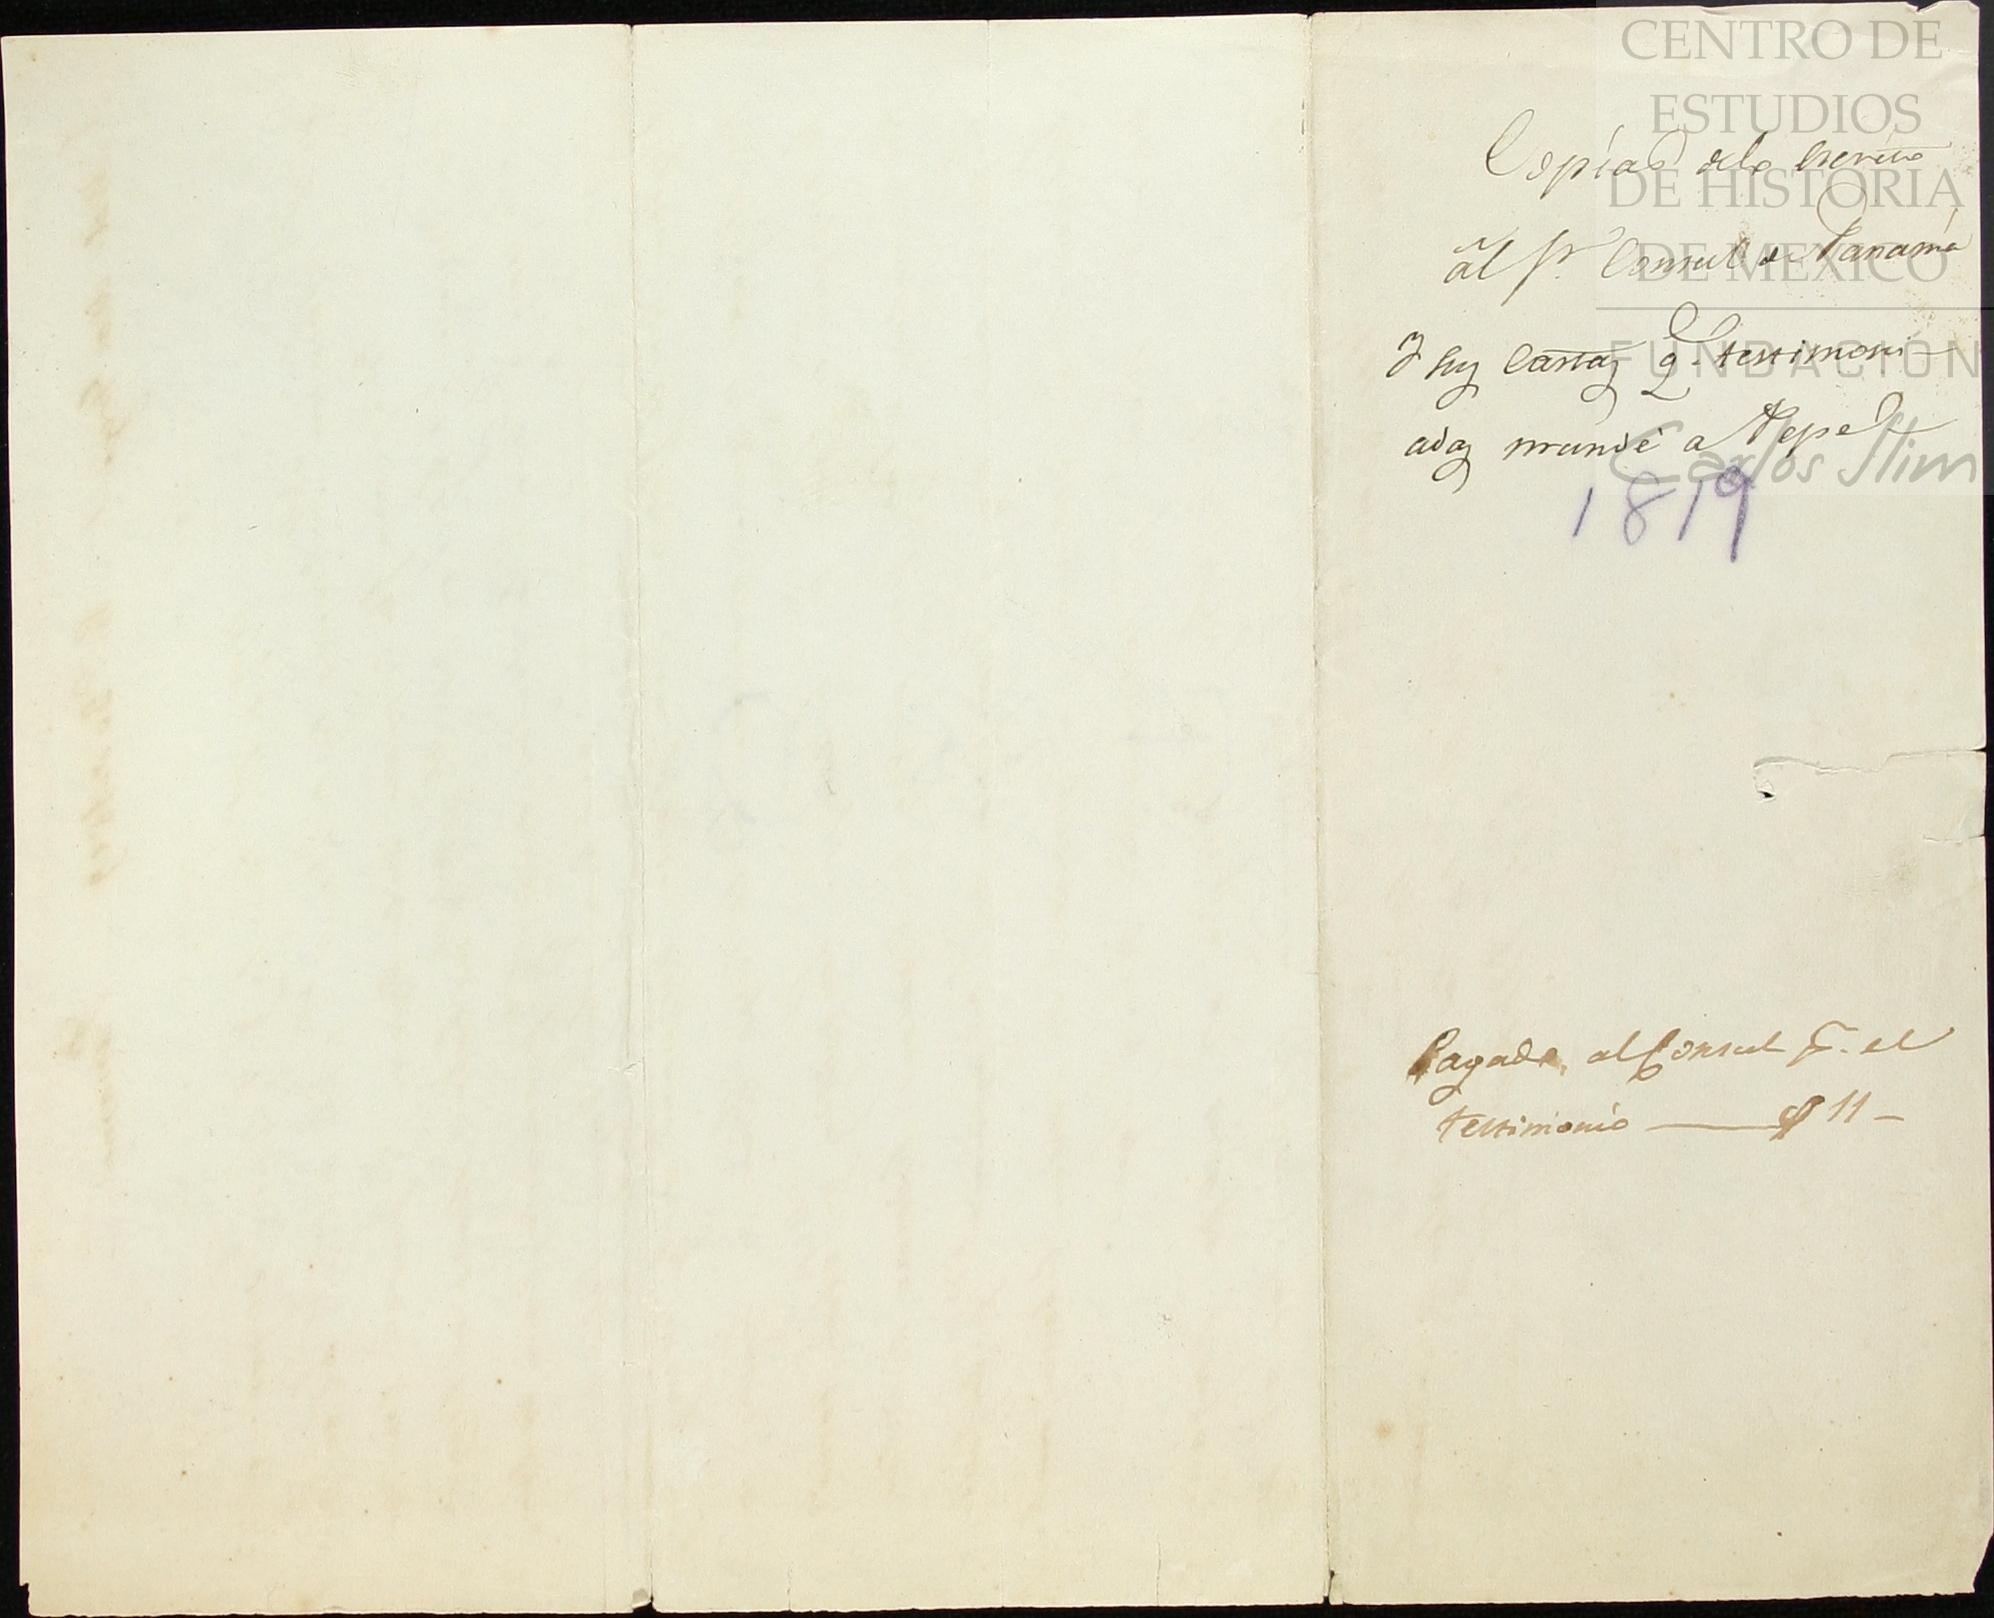 CENTRO DE
ESTUDIOS
DE HISTORIA
DE MEXICO
FUNDACION
Carlos Slim
Copias delo escrito
al Sr. Consul de Panamá
y las Cartas q. testimoni-
adas mandé a Pepe
1819
Pagado al Consul pr. el
testimonio — $ 11 —